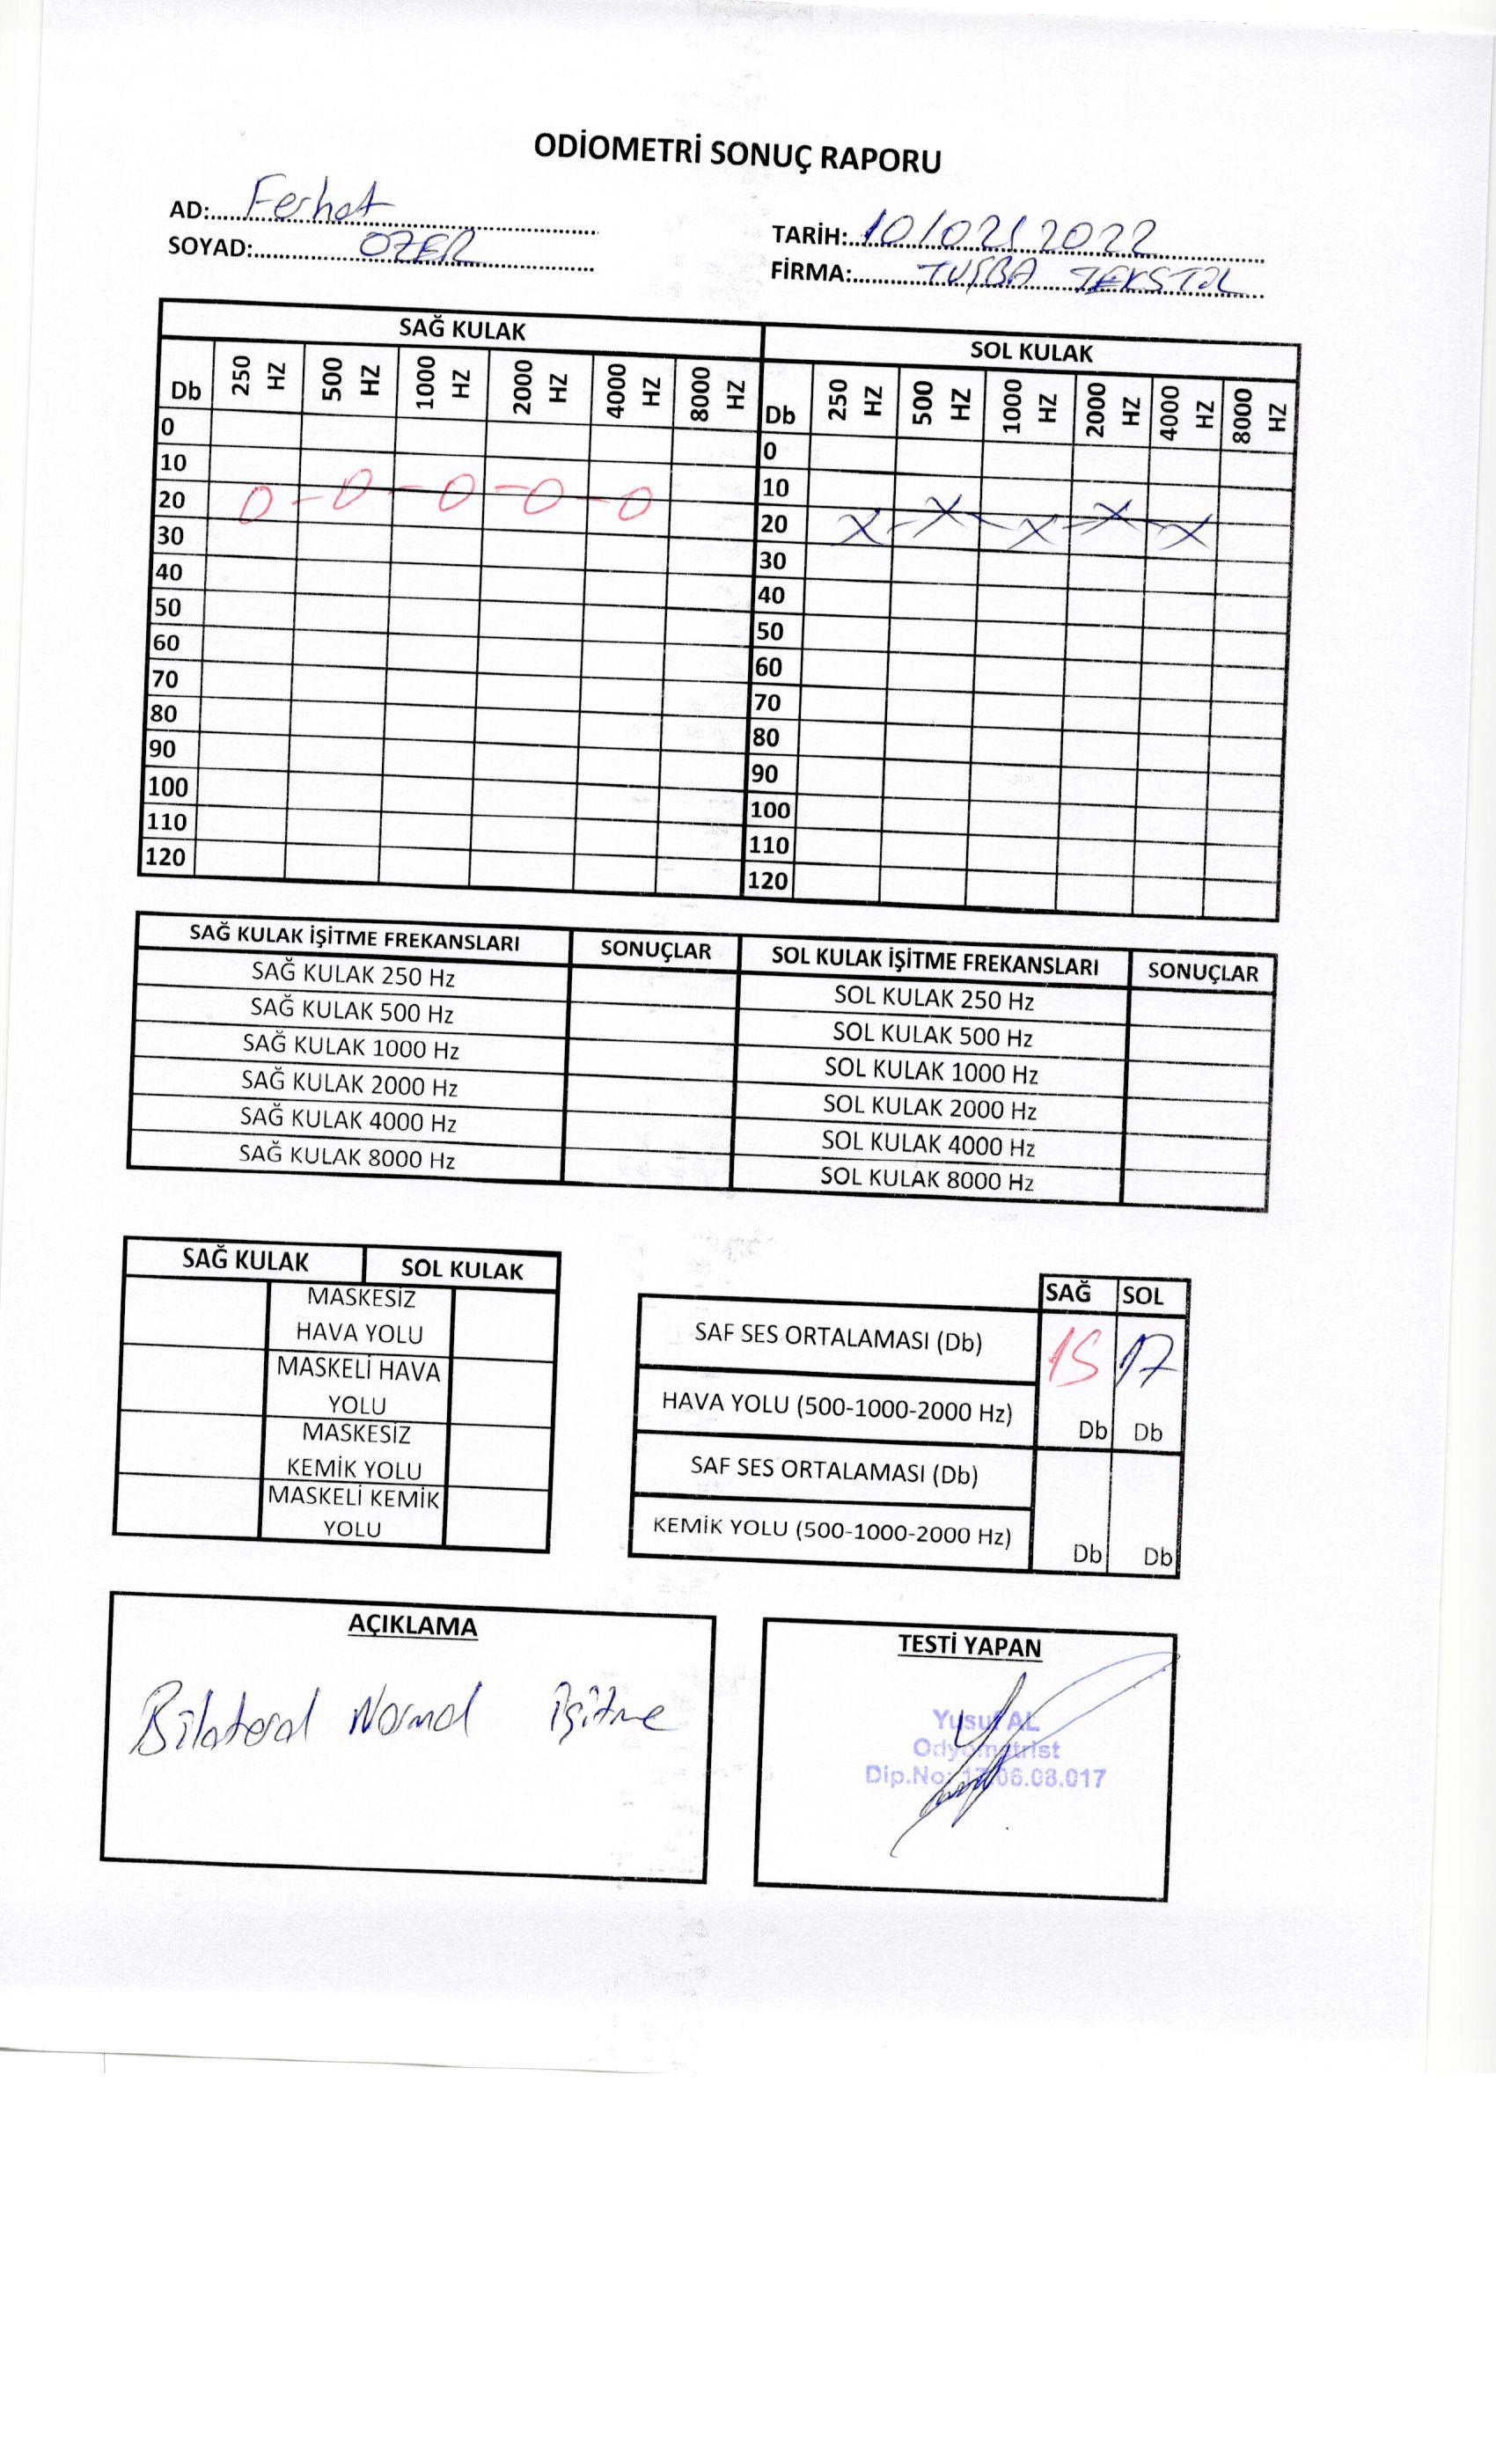 ODİOMETRİ SONUÇ RAPORU
AD: Ferhat
SOYAD: ÖZER
TARİH: 10/02/2022
FİRMA: TUŞBA TEKSTİL
SAĞ KULAK SOL KULAK
Db 250 HZ 500 HZ 1000 HZ 2000 HZ 4000 HZ 8000 HZ Db 250 HZ 500 HZ 1000 HZ 2000 HZ 4000 HZ 8000 HZ
0 0
10 10
20 20
30 30
40 40
50 50
60 60
70 70
80 80
90 90
100 100
110 110
120 120
SAĞ KULAK İŞİTME FREKANSLARI SONUÇLAR SOL KULAK İŞİTME FREKANSLARI SONUÇLAR
SAĞ KULAK 250 Hz SOL KULAK 250 Hz
SAĞ KULAK 500 Hz SOL KULAK 500 Hz
SAĞ KULAK 1000 Hz SOL KULAK 1000 Hz
SAĞ KULAK 2000 Hz SOL KULAK 2000 Hz
SAĞ KULAK 4000 Hz SOL KULAK 4000 Hz
SAĞ KULAK 8000 Hz SOL KULAK 8000 Hz
SAĞ KULAK SOL KULAK
MASKESİZ
HAVA YOLU
MASKELİ HAVA
YOLU
MASKESİZ
KEMİK YOLU
MASKELİ KEMİK
YOLU
SAĞ SOL
SAF SES ORTALAMASI (Db) 15 17
HAVA YOLU (500-1000-2000 Hz) Db Db
SAF SES ORTALAMASI (Db)
KEMİK YOLU (500-1000-2000 Hz) Db Db
AÇIKLAMA
Bilateral Normal işitme
TESTİ YAPAN
Yusuf AL
Odyometrist
Dip.No: 17.06.08.017